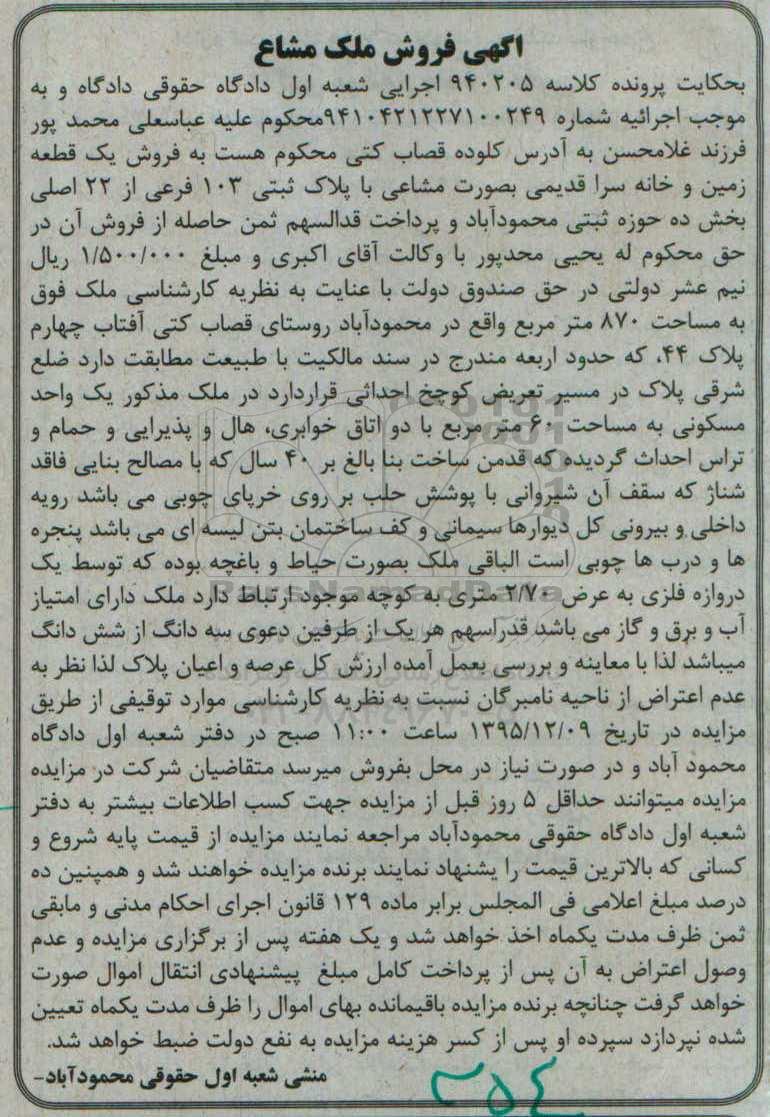 آگهی فروش ملک مشاع
بحکایت پرونده کلاسه ۹۴۰۲۰۵ اجرایی شعبه اول دادگاه حقوقی دادگاه و به
موجب اجرائیه شماره ۹۴۱۰۴۲۱۲۲۷۱۰۰۲۴۹محکوم علیه عباسعلی محمد پور
فرزند غلامحسن به آدرس کلوده قصاب کتی محکوم هست به فروش یک قطعه
زمین و خانه سرا قدیمی بصورت مشاعی با پلاک ثبتی ۱۰۳ فرعی از ۲۲ اصلی
بخش ده حوزه ثبتی محمودآباد و پرداخت قدالسهم ثمن حاصله از فروش آن در
حق محکوم له یحیی محدپور با وکالت آقای اکبری و مبلغ ۱/۵۰۰/۰۰۰ ریال
نیم عشر دولتی در حق صندوق دولت با عنایت به نظریه کارشناسی ملک فوق
به مساحت ۸۷۰ متر مربع واقع در محمودآباد روستای قصاب کتی آفتاب چهارم
پلاک ۴۴، که حدود اربعه مندرج در سند مالکیت با طبیعت مطابقت دارد ضلع
شرقی پلاک در مسیر تعریض کوچخ احداثی قراردارد در ملک مذکور یک واحد
مسکونی به مساحت ۶۰ متر مربع با دو اتاق خوابری، هال و پذیرایی و حمام و
تراس احداث گردیده که قدمن ساخت بنا بالغ بر ۴۰ سال که با مصالح بنایی فاقد
شناژ که سقف آن شیروانی با پوشش حلب بر روی خرپای چوبی می باشد رویه
داخلی و بیرونی کل دیوارها سیمانی و کف ساختمان بتن لیسه ای می باشد پنجره
ها و درب ها چوبی است الباقی ملک بصورت حیاط و باغچه بوده که توسط یک
دروازه فلزی به عرض ۲/۷۰ متری به کوچه موجود ارتباط دارد ملک دارای امتیاز
آب و برق و گاز می باشد قدراسهم هر یک از طرفین دعوی سه دانگ از شش دانگ
میباشد لذا با معاینه و بررسی بعمل آمده ارزش کل عرصه و اعیان پلاک لذا نظر به
عدم اعتراض از ناحیه نامبرگان نسبت به نظریه کارشناسی موارد توقیفی از طریق
مزایده در تاریخ ۱۳۹۵/۱۲/۰۹ ساعت ۱۱:۰۰ صبح در دفتر شعبه اول دادگاه
محمود آباد و در صورت نیاز در محل بفروش میرسد متقاضیان شرکت در مزایده
مزایده میتوانند حداقل ۵ روز قبل از مزایده جهت کسب اطلاعات بیشتر به دفتر
شعبه اول دادگاه حقوقی محمودآباد مراجعه نمایند مزایده از قیمت پایه شروع و
کسانی که بالاترین قیمت را یشنهاد نمایند برنده مزایده خواهند شد و همپنین ده
درصد مبلغ اعلامی فی المجلس برابر ماده ۱۲۹ قانون اجرای احکام مدنی و مابقی
ثمن ظرف مدت یکماه اخذ خواهد شد و یک هفته پس از برگزاری مزایده و عدم
وصول اعتراض به آن پس از پرداخت کامل مبلغ پیشنهادی انتقال اموال صورت
خواهد گرفت چنانچه برنده مزایده باقیمانده بهای اموال را ظرف مدت یکماه تعیین
شده نپردازد سپرده او پس از کسر هزینه مزایده به نفع دولت ضبط خواهد شد.
منشی شعبه اول حقوقی محمودآباد–